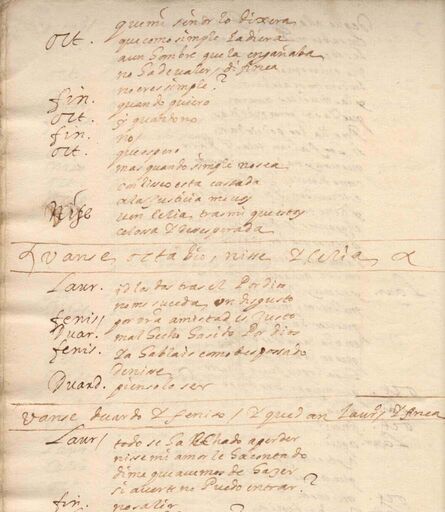 que mi señor lo dixera
Oct. que como simple la diera
a un hombre que la engañaba
no ha de valer, di finea
no eres simple?
fin. quando quiero
Oct. y quando no
fin. no
Oct. que espero
mas quando simple no sea
con liseo esta casada
a la Justicia me voy
Nise ven Celia tras mi que estoy
celosa y desesperada
Vanse octabio, nisse y Celia
Laur. id la dos tras el Por dios
no me suceda un disgusto
fenis/ por vra amistad es Justo
Duar. mal hecho ha sido Por dios
fenis. ya hablais como desposado
de nise
Duard. piensolo ser
Vanse duardo y feniso / y quedan laur. y finea
Laur/ todo se ha echado a perder
nise mi amor le ha contado
dime que avemos de hazer
si a verte no Puedo entrar?
fin. no salir